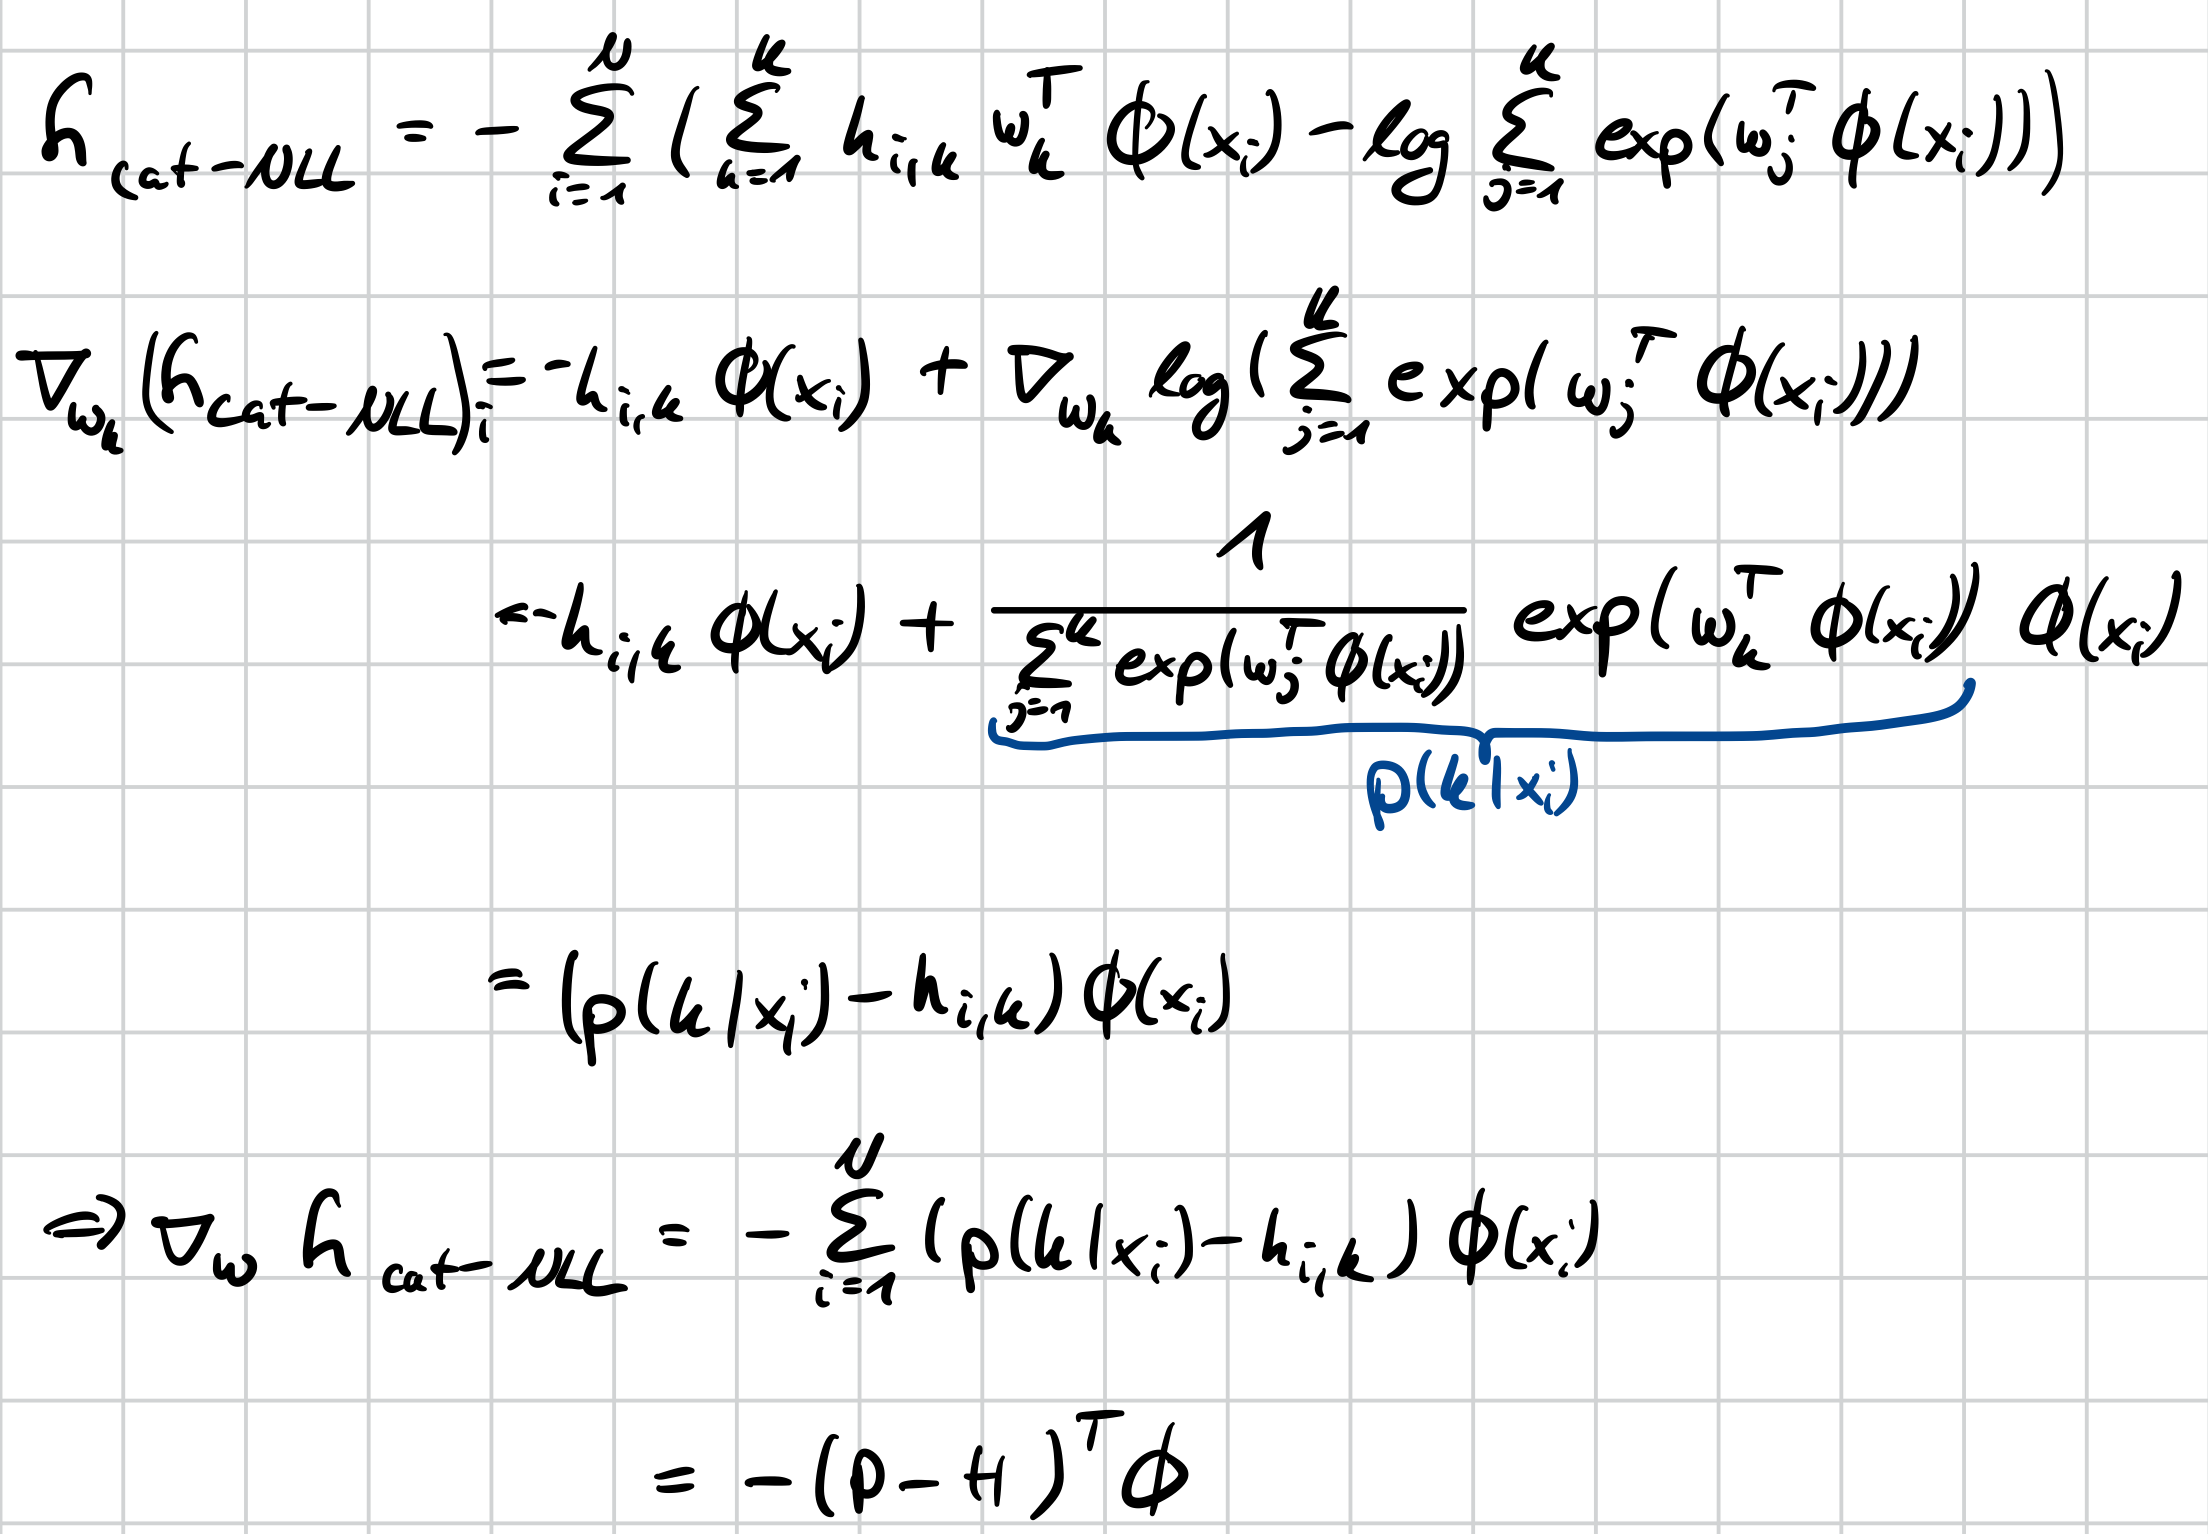 h_{cat-NLL} = - \sum_{i=1}^{N} ( \sum_{k=1}^{K} h_{i,k} w_k^T ϕ(x_i) - log \sum_{j=1}^{K} exp(w_j^T ϕ(x_i)))
∇_{w_k} (h_{cat-NLL})_i = -h_{i,k} ϕ(x_i) + ∇_{w_k} log( \sum_{j=1}^{K} exp( w_j^T ϕ(x_i)))
= -h_{i,k} ϕ(x_i) + \frac{1}{\sum_{j=1}^{K} exp(w_j^T ϕ(x_i))} exp(w_k^T ϕ(x_i)) ϕ(x_i)
p(k|x_i)
= (p(k|x_i) - h_{i,k}) ϕ(x_i)
⇒ ∇_w h_{cat-NLL} = - \sum_{i=1}^{N} (p(k|x_i) - h_{i,k}) ϕ(x_i)
= -(P - H)^T ϕ